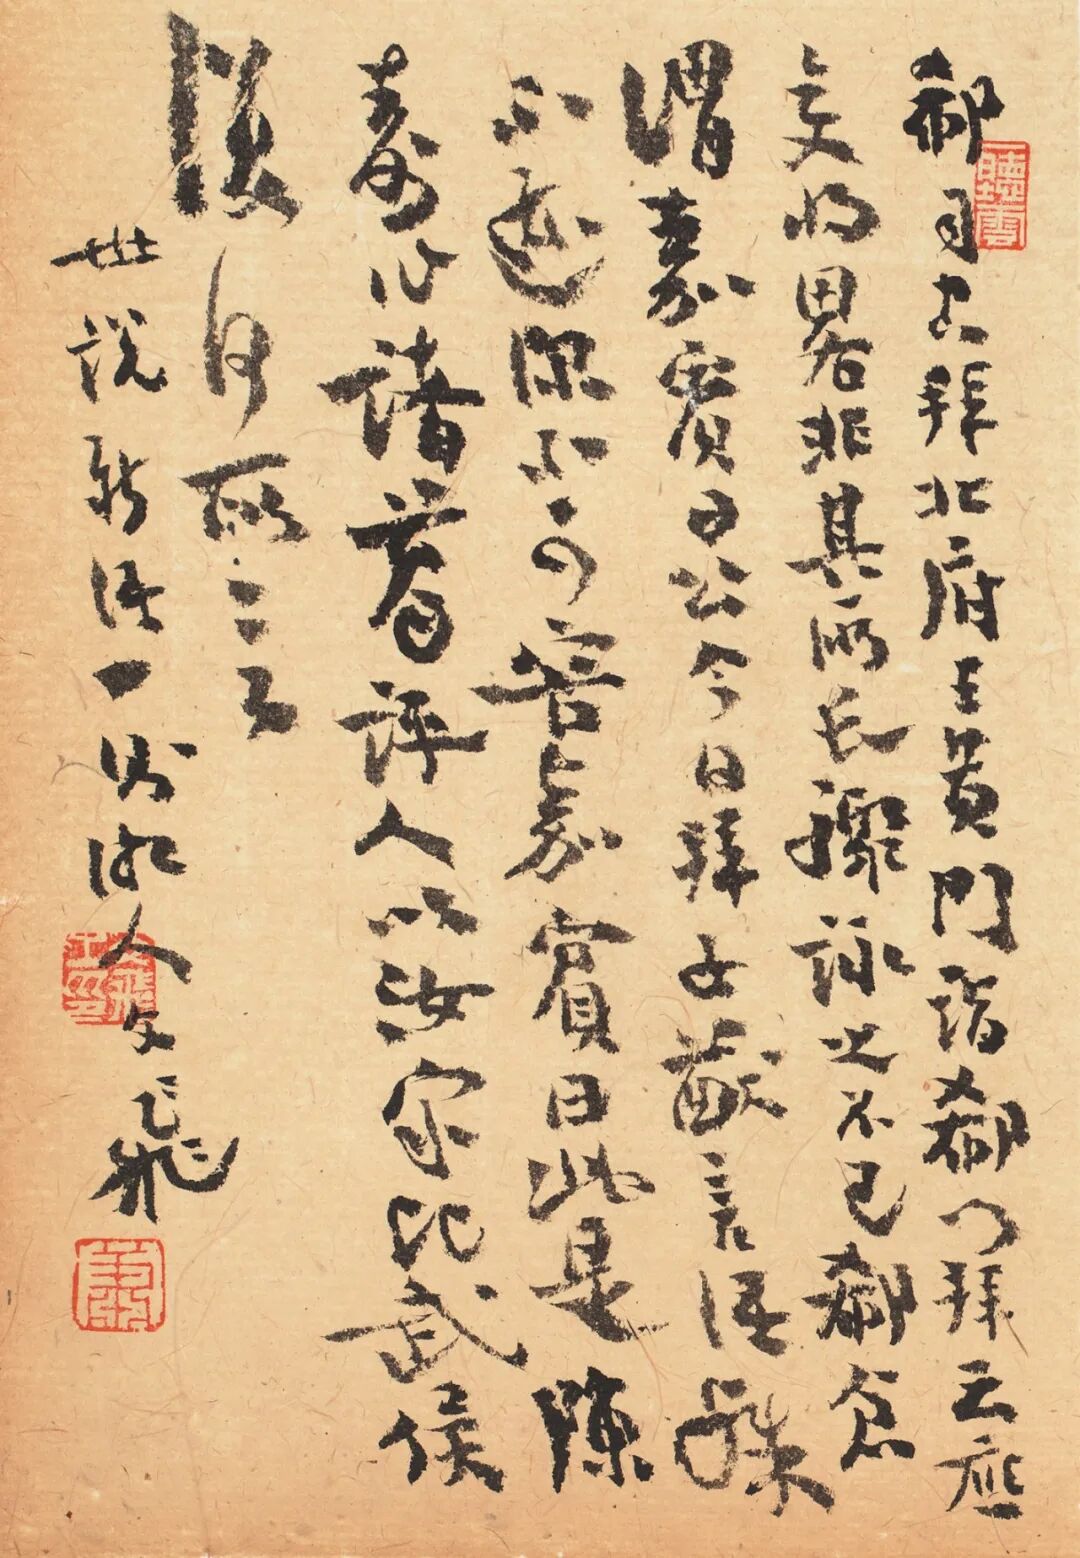 郗司空拜北府王黃門詣郗門拜云應
變將畧非其所長驟詠之不已郗倉
謂嘉賓曰公今日拜子猷言語殊
不遜深不可容嘉賓曰此是陳
壽作諸葛評人以汝家比武侯
復何所言
世說新語一則湘人文飛